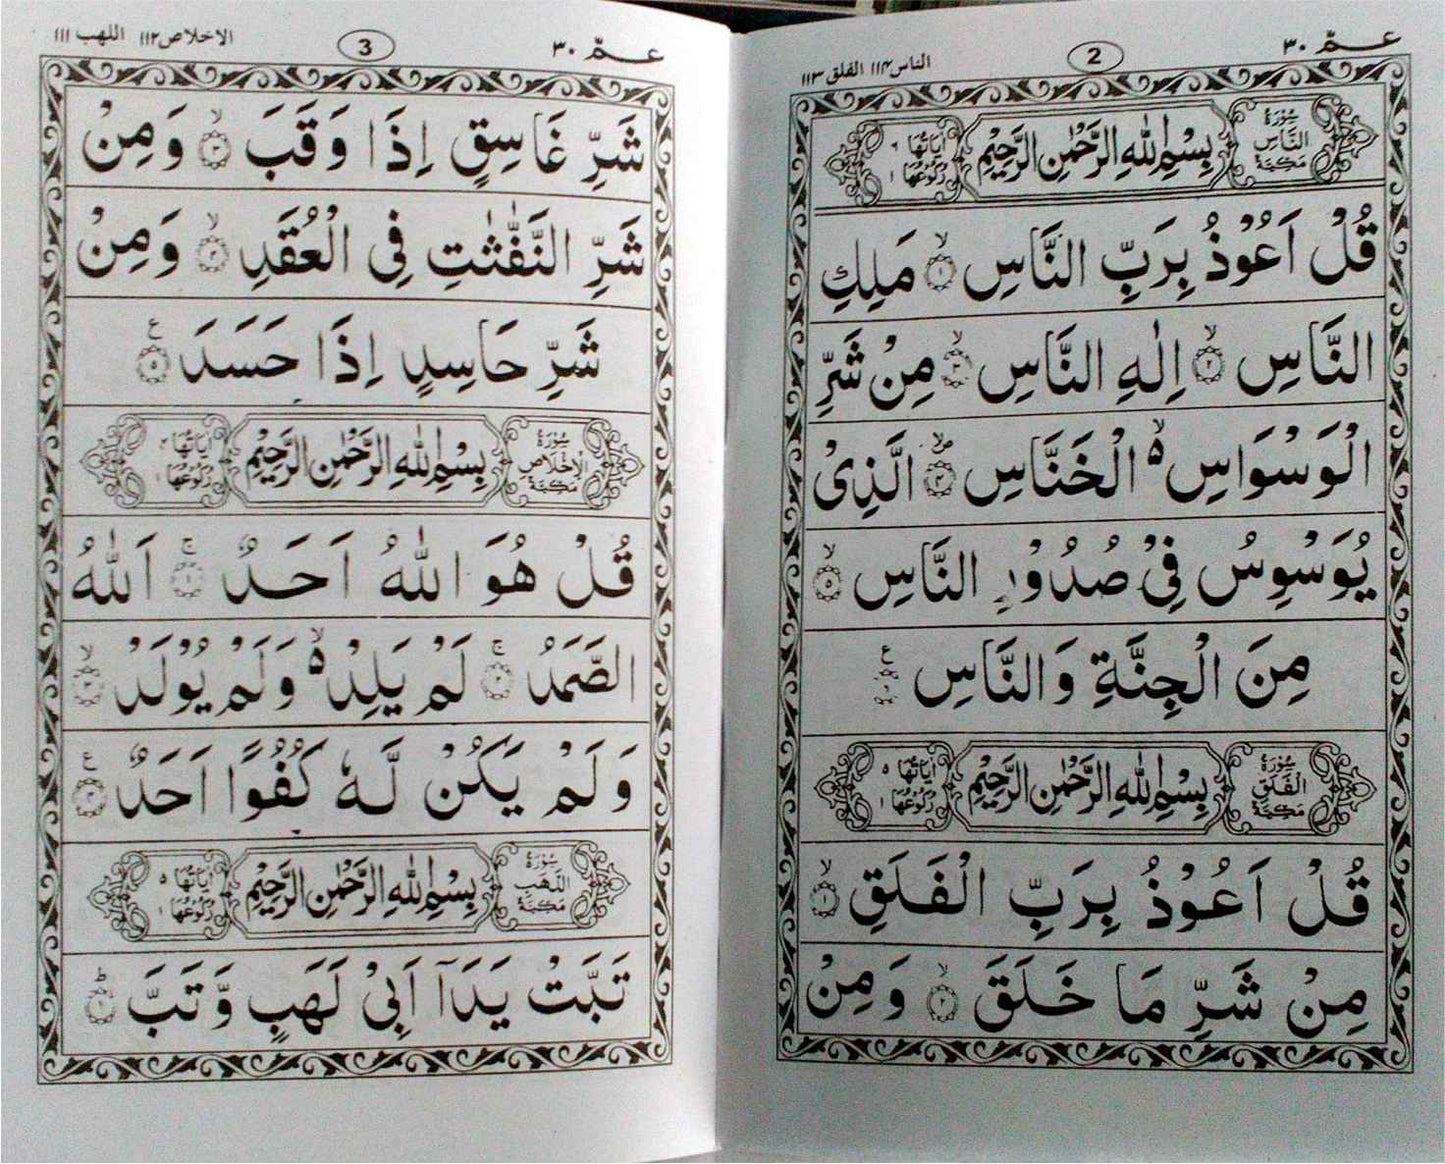 عـمّ ٣٠
2
الناس ١١٤ الفلق ١١٣
سُوْرَةُ النَّاسِ مَكِّيَّةٌ
بِسْمِ اللهِ الرَّحْمٰنِ الرَّحِيْمِ
اٰيَاتُهَا ٦ رُكُوْعُهَا ١
قُلْ اَعُوْذُ بِرَبِّ النَّاسِ ۙ ١ مَلِكِ
النَّاسِ ۙ ٢ اِلٰهِ النَّاسِ ۙ ٣ مِنْ شَرِّ
الْوَسْوَاسِ ۙ٥ الْخَنَّاسِ ٤ الَّذِىْ
يُوَسْوِسُ فِىْ صُدُوْرِ النَّاسِ ۙ ٥
مِنَ الْجِنَّةِ وَالنَّاسِ ٦ ع
سُوْرَةُ الْفَلَقِ مَكِّيَّةٌ
بِسْمِ اللهِ الرَّحْمٰنِ الرَّحِيْمِ
اٰيَاتُهَا ٥ رُكُوْعُهَا ١
قُلْ اَعُوْذُ بِرَبِّ الْفَلَقِ ۙ ١
مِنْ شَرِّ مَا خَلَقَ ۙ ٢ وَمِنْ
عـمّ ٣٠
3
الاخلاص ١١٢ اللهب ١١١
شَرِّ غَاسِقٍ اِذَا وَقَبَ ۙ ٣ وَمِنْ
شَرِّ النَّفّٰثٰتِ فِى الْعُقَدِ ۙ ٤ وَمِنْ
شَرِّ حَاسِدٍ اِذَا حَسَدَ ٥ ع
سُوْرَةُ الْاِخْلَاصِ مَكِّيَّةٌ
بِسْمِ اللهِ الرَّحْمٰنِ الرَّحِيْمِ
اٰيَاتُهَا ٤ رُكُوْعُهَا ١
قُلْ هُوَ اللّٰهُ اَحَدٌ ۚ ١ اَللّٰهُ
الصَّمَدُ ۚ ٢ لَمْ يَلِدْ ۙ٥ وَلَمْ يُوْلَدْ ۙ ٣
وَلَمْ يَكُنْ لَّهٗ كُفُوًا اَحَدٌ ٤ ع
سُوْرَةُ اللَّهَبِ مَكِّيَّةٌ
بِسْمِ اللهِ الرَّحْمٰنِ الرَّحِيْمِ
اٰيَاتُهَا ٥ رُكُوْعُهَا ١
تَبَّتْ يَدَآ اَبِىْ لَهَبٍ وَّتَبَّ ؕ ١